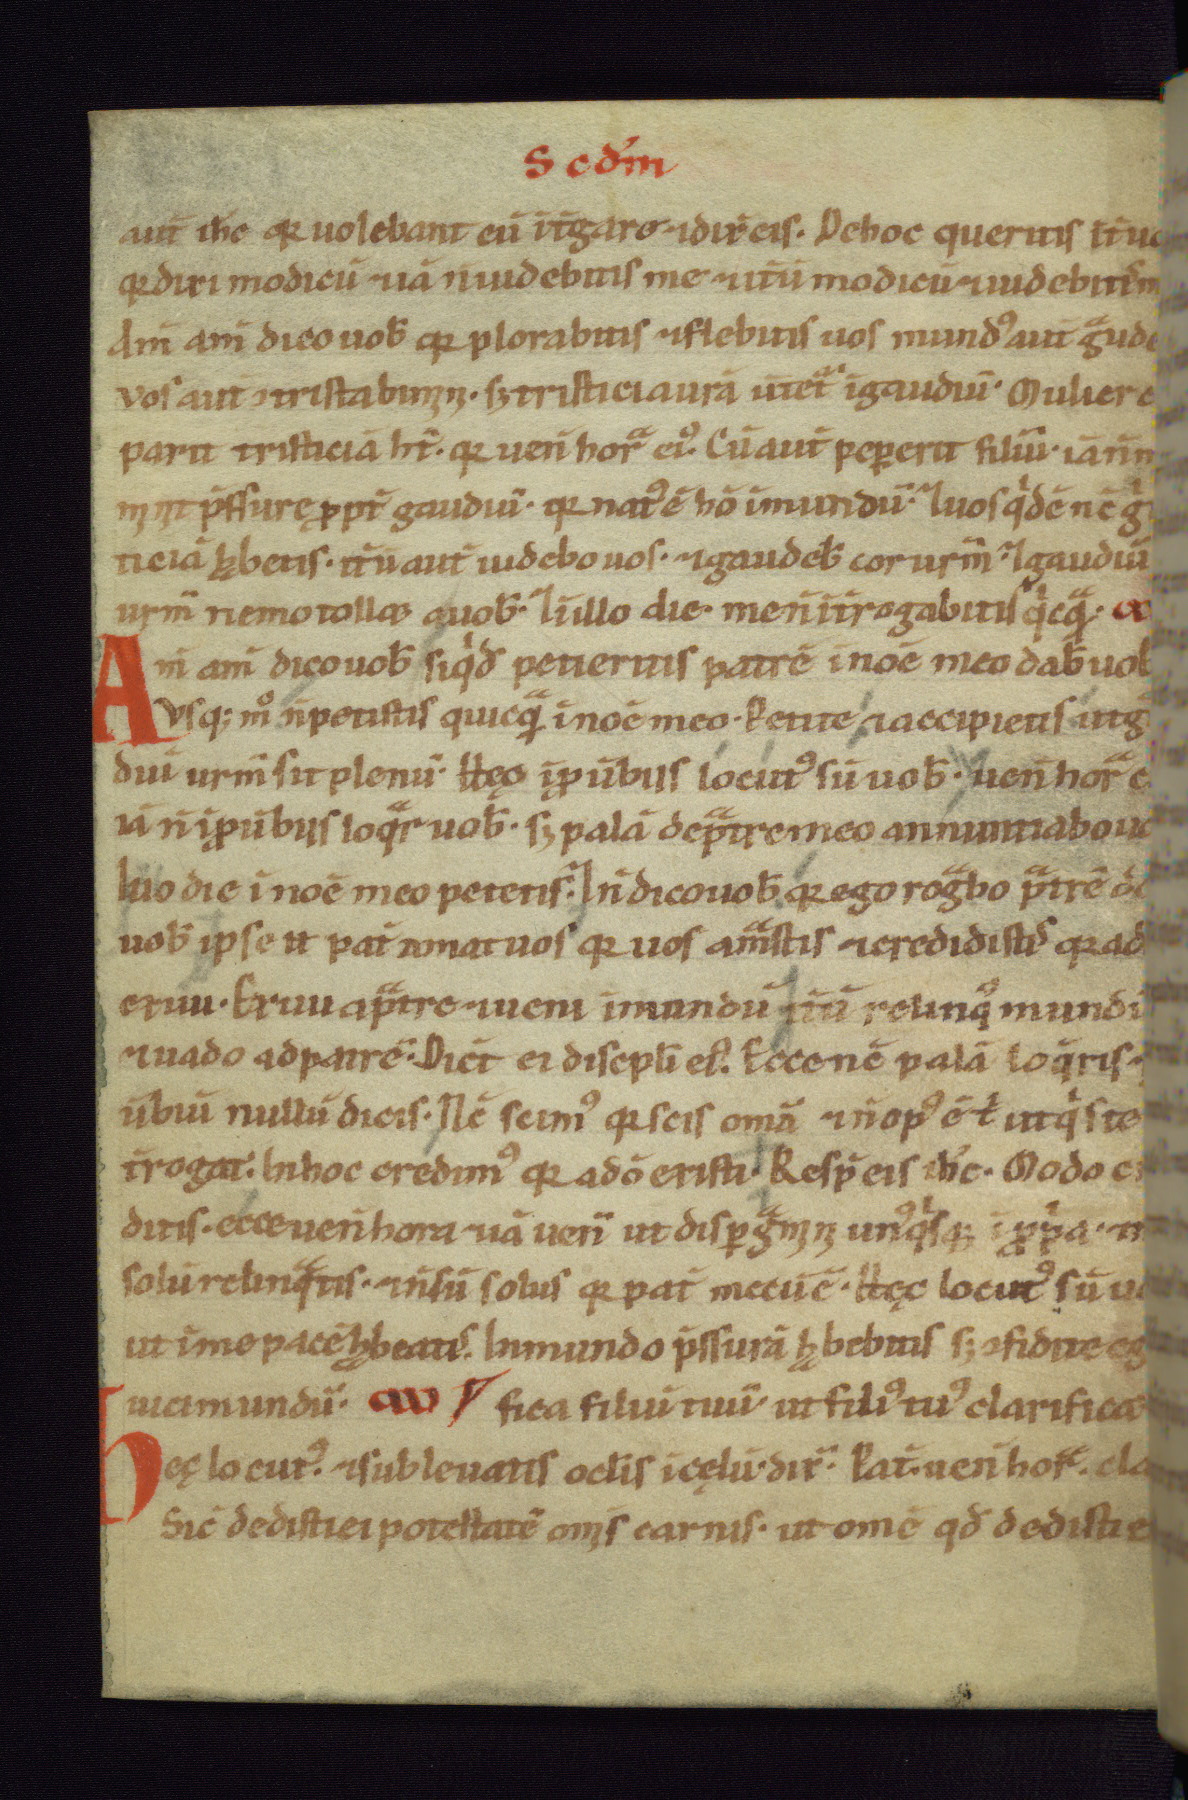 Scdm̄
aut̄ ih̄c qꝛ uolebant eū int̄garo ⁊ dix̄ eis. De hoc queritis int̄ uo
qꝛ dixi modicū ⁊ iā n̄ uidebitis me ⁊ itū modicū ⁊ uidebitis m
Am̄ am̄ dico uob̄ qꝛ plorabitis ⁊ flebitis uos mundꝰ aut̄ gaude
vos aut̄ ↄtristabimini. sꝫ tristicia urā uertet̄ ī gaudiū. Mulier c
parit tristiciā ht̄. qꝛ uen̄ hora eiꝰ. Cū aut̄ pepererit filiū. iā n̄ m
p̄ssurę ꝓpt̄ gaudiū. qꝛ natꝰ ē hō ī mundū. ⁊ uos qͥdē nc̄
ticiā hꝫbetis. itū aut̄ uidebo uos. ⁊ gaudeb̄ cor urm̄. ⁊ gaudiū
urm̄ nemo tollet a uob̄. ⁊ ī illo die me n̄ int̄rogabitis qͥcqͣ.
Am̄ am̄ dico uob̄ siqͥd petieritis patrē ī noē meo dab̄ uob̄
Vsqꝫ mͦ n̄ petistis quicqͣ ī noē meo. Petite ⁊ accipietis ut g
diū urm̄ sit plenū. Hęc ī ꝓūbiis locutꝰ sū uob̄. uen̄ hora c
iā n̄ ī ꝓūbiis loqͣr uob̄. sꝫ palā de patre meo annuntiabo uo
Illo die ī noē meo petetis. ⁊ n̄ dico uob̄ qꝛ ego rogͣbo pͣtrē dē
uob̄ ipse n̄ pat̄ amat uos qꝛ uos amͣstis ⁊ credidistis qꝛ a d
exiui. Exiui a pͣtre ⁊ ueni ī mundū itū relinqͦ mundū
⁊ uado ad patrē. Dict̄ ei discipl̄i eiꝰ. Ecce nc̄ palā loqͣris.
ūbiū nullū dicis. Nc̄ scimꝰ qꝛ scis omā ⁊ n̄ opꝰ ē t̄ ut qͥs te
t̄rogat. In hoc credimꝰ qꝛ a dō existi. Resp̄ eis ih̄c. Modo c
ditis. ecce uen̄ hora ⁊ iā uen̄ ut dispgͣmini unꝰqͥsqꝫ ī ꝓpͥa.
solū relinqͣtis. ⁊ n̄ sū solus qꝛ pat̄ mecū ē. Hęc locutꝰ sū uo
ut ī me pacē hꝫbeatis. In mundo p̄ssurā hꝫbebitis sꝫ ↄfidite eg
uici mundū. fica filiū tuū. ut filiꝰ tuꝰ clarificet
Hęc locutꝰ. ⁊ subleuatis oclis ī cęlū. dix̄. Pat̄. uen̄ hora. cla
Sic̄ dedisti ei potestatē omīs carnis. ut omē qd̄ dedisti e